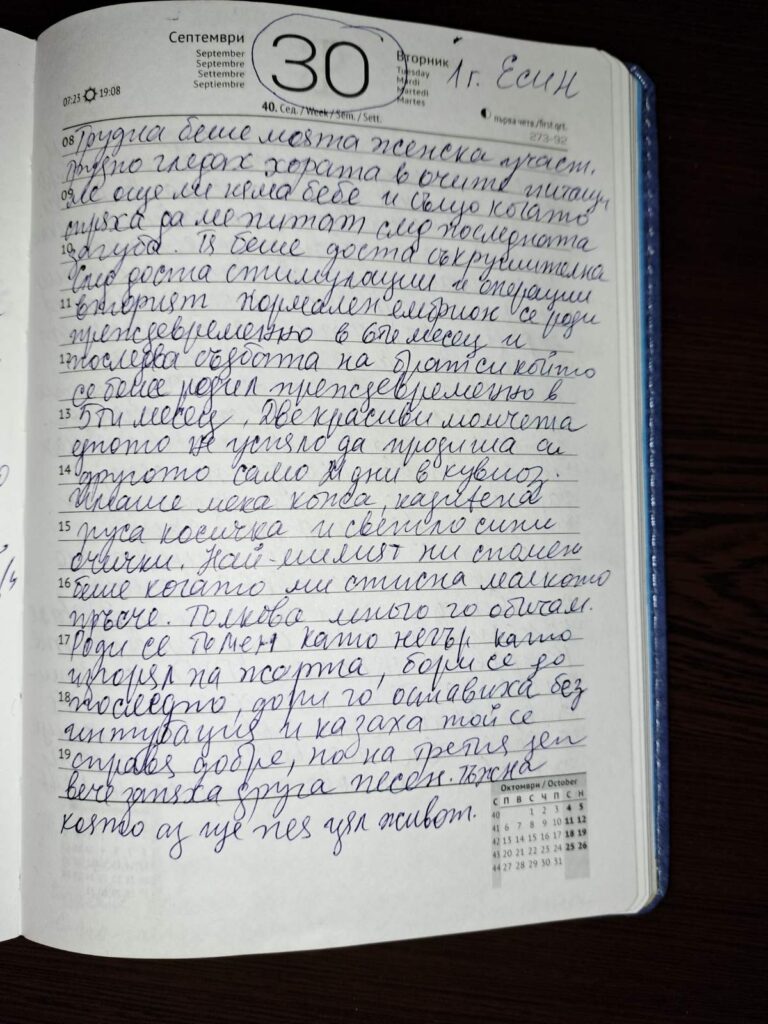 Септември
September
Septembre
Settembre
Septiembre
30
Вторник
Tuesday
Mardi
Martedi
Martes
1г. Есин
07:23 19:08
40. Сед. / Week / Sem. / Sett.
първа четв./first qrt.
273-92
08 Трудна беше моята женска участ.
Трудно гледах хората в очите питащи
09 ме още ли няма бебе и също когато
спряха да ме питат след последната
10 загуба. Тя беше доста съкрушителна
След доста стимулации и операции
11 вторият нормален ембрион се роди
преждевременно в 6ти месец и
12 последва съдбата на братси който
се беше родил преждевременно в
13 5ти месец. Две красиви момчета
едното не успяло да продиша а
14 другото само 21 дни в кувьоз.
Имаше мека кожа,
15 руса косичка и светло сини
очички. Най-милият ни спомен
16 беше когато ми стисна малкото
пръсче. Толкова много го обичам.
17 Роди се тъмен като негър като
изгорял на жарта, бори се до
18 последно, дори го оставиха без
интубация и казаха той се
19 справя добре, но на третия ден
вече запяха друга песен. Тъжна
която аз ще пея цял живот.
Октомври / October
С П В С Ч П С Н
40 1 2 3 4 5
41 6 7 8 9 10 11 12
42 13 14 15 16 17 18 19
43 20 21 22 23 24 25 26
44 27 28 29 30 31